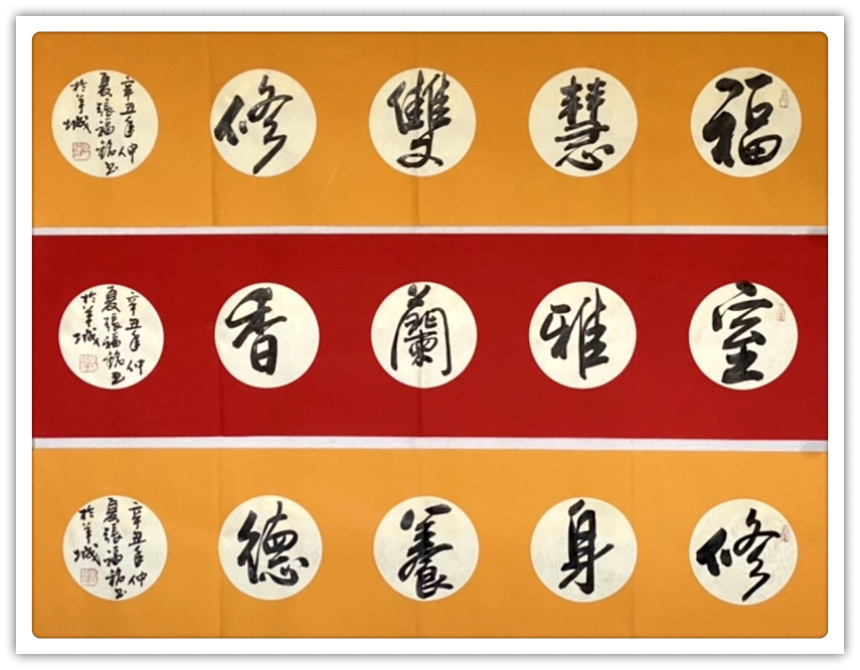 福慧雙修
辛丑年仲
夏張福銘書
於羊城
室雅蘭香
辛丑年仲
夏張福銘書
於羊城
修身養德
辛丑年仲
夏張福銘書
於羊城